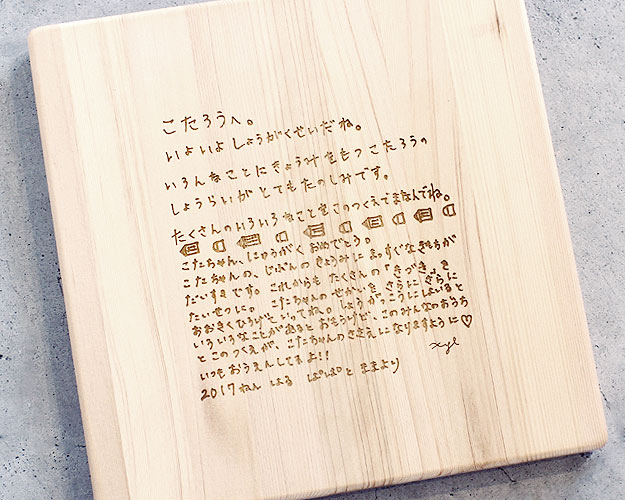 こたろうへ。
いよいよ しょうがくせいだね。
いろんなことにきょうみをもつ こたろうの
しょうらいが とてもたのしみです。
たくさんのいろいろなことをこのつくえでまなんでね。
こたちゃん、にゅうがく おめでとう。
こたちゃんの、じぶんの きょうみに まっすぐなきもちが
だいすきです。これからも たくさんの「きづき」を
たいせつに。 こたちゃんのせかいを さらに さらに
おおきくひろげて いってね。しょうがっこうに はいると
いろいろなことがあると おもうけど、このみんなのおうち
とこのつくえが、こたちゃんのささえに なりますように♡
いつもおうえんしてるよ!!
2017ねん はる ぱぱと ままより